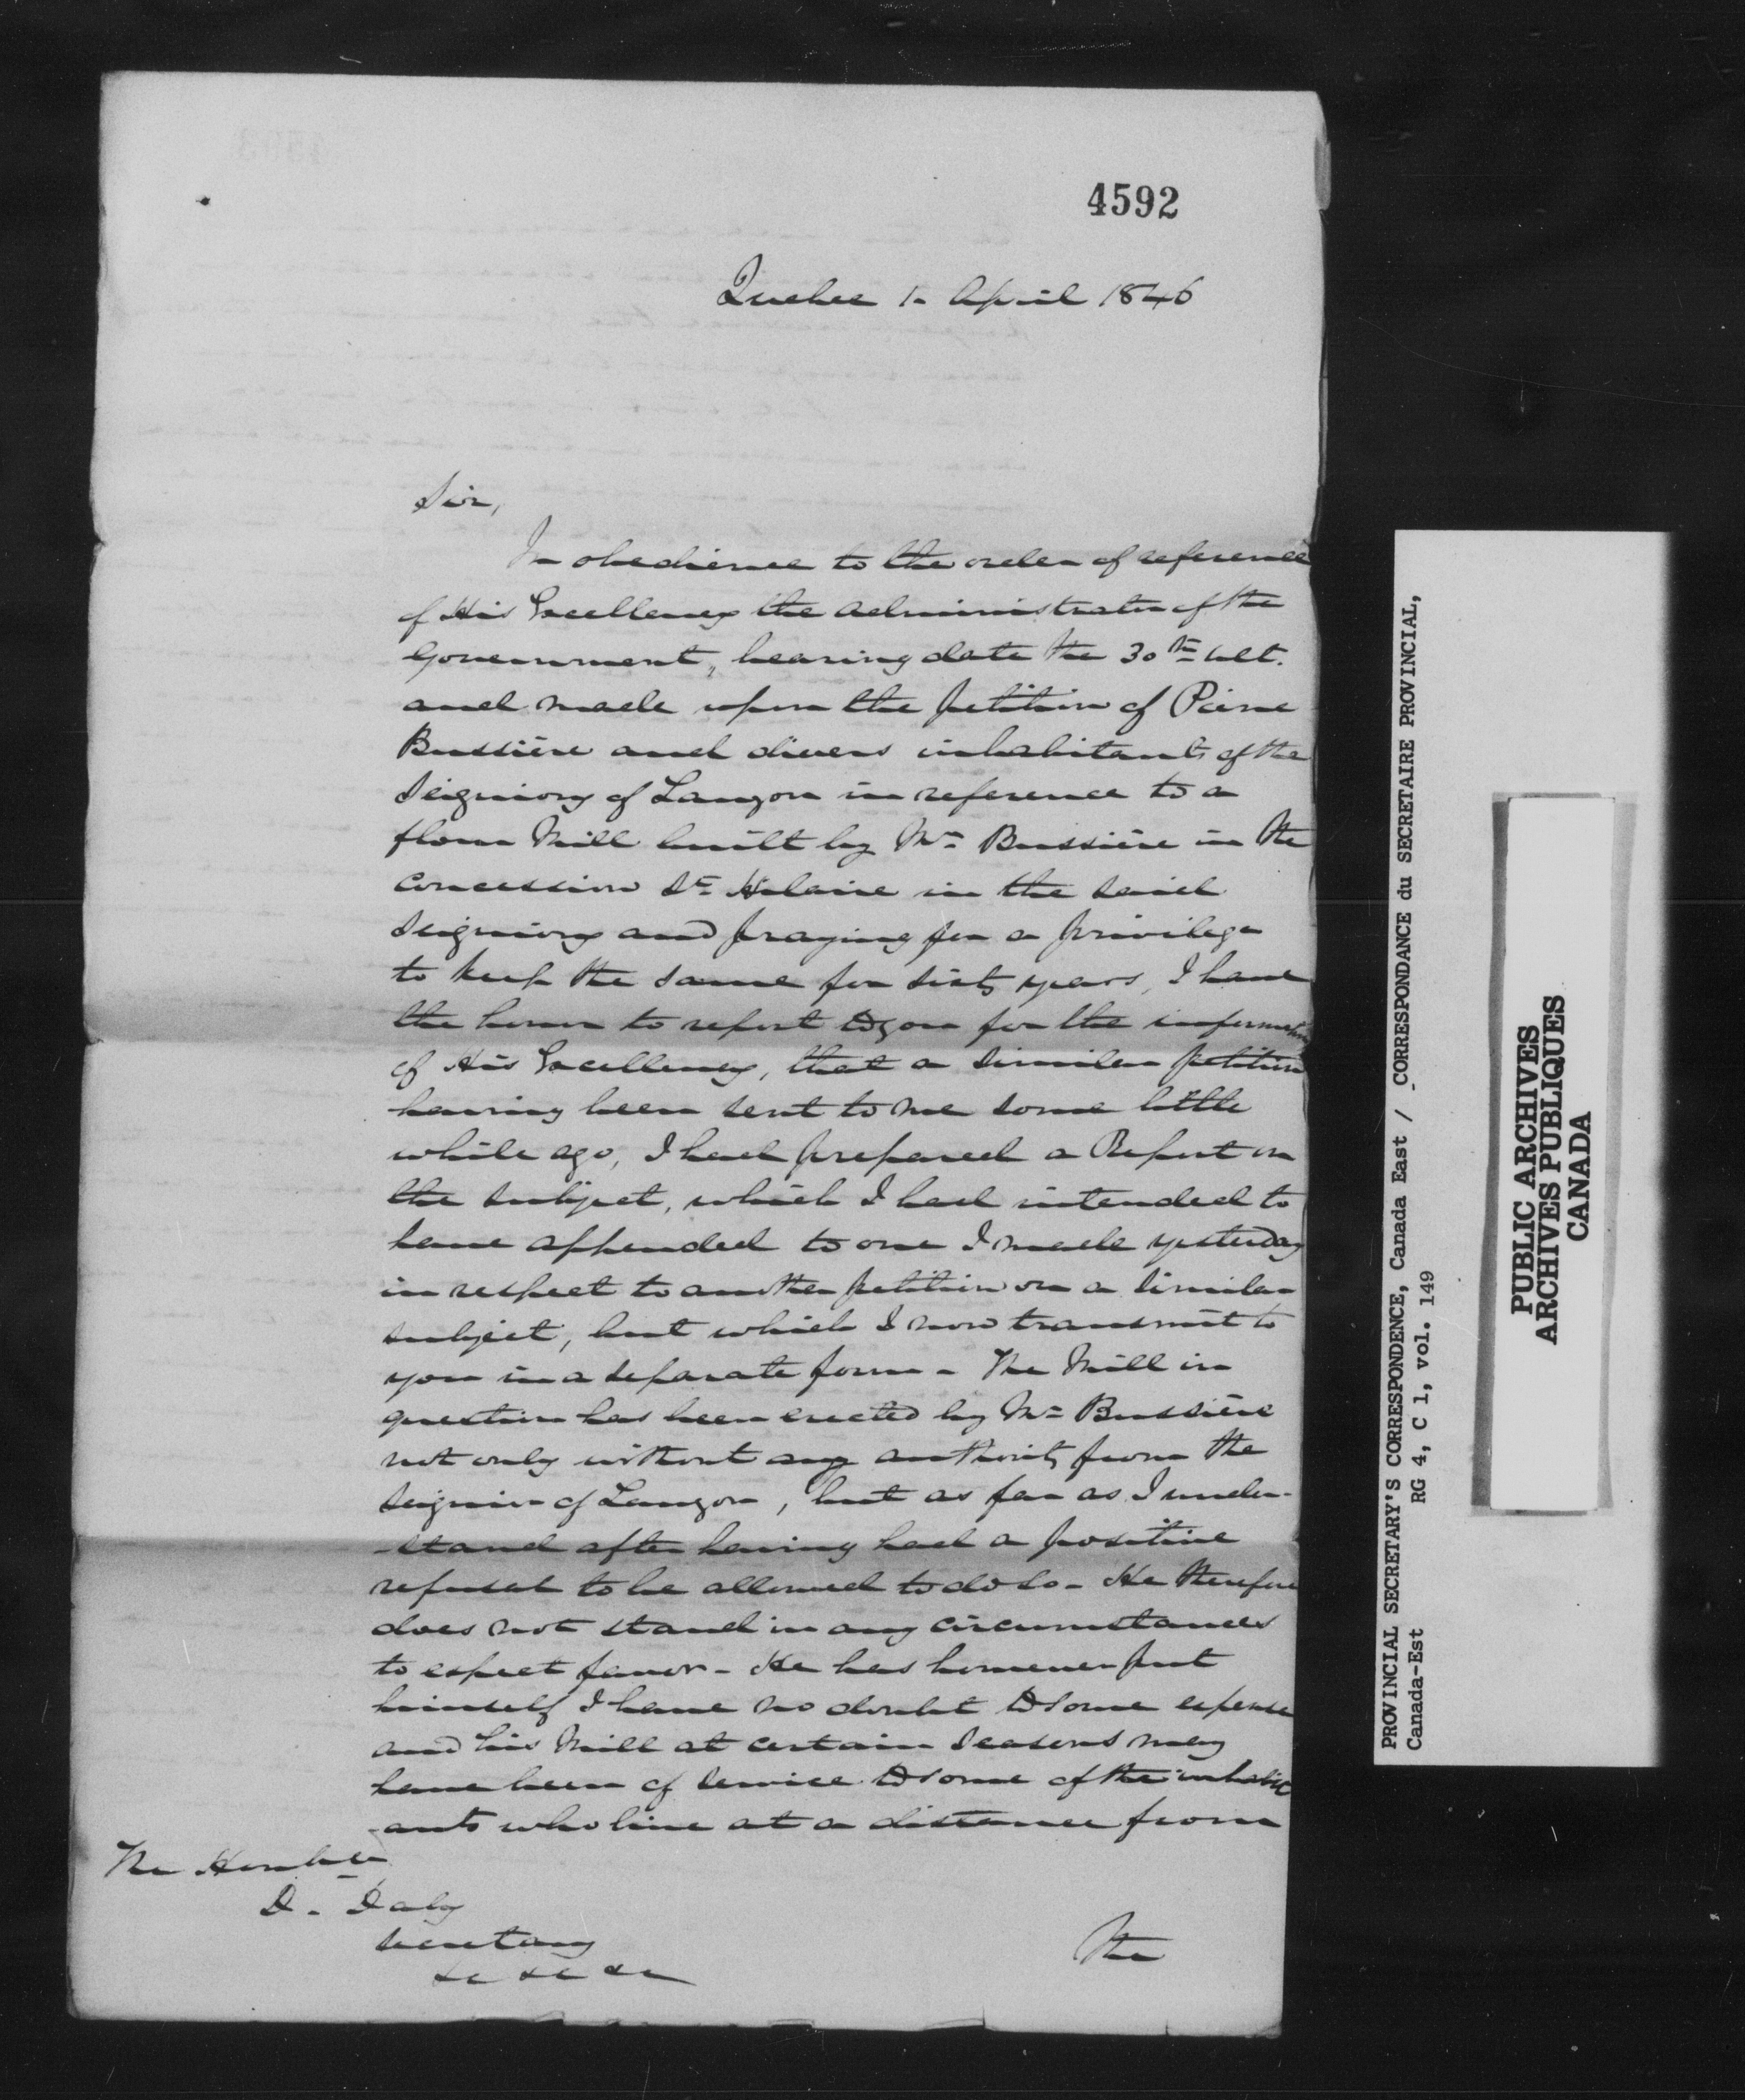 4592
Quebec 1- April 1846
Sir,
In obedience to the order of reference
of His Excellency the administrator of the
Government, bearing date the 30th ult.
and made upon the petition of Pierre
Bussière and divers inhabitants of the
Seigniory of Lauzon in reference to a
flour Mill built by Mr Bussière in the
concession St Hilaire in the said
Seigniory and praying for a privilege
to keep the same for sixty years, I have
the honor to report to you for the information
of His Excellency, that a similar petition
having been sent to me some little
while ago, I had prepared a Report on
the subject, which I had intended to
have appended to one I made yesterday
in respect to another petition on a similar
subject, but which I now transmit to
you in a separate form - The Mill in
question has been erected by Mr Bussière
not only without any authority from the
Seignior of Lauzon, but as far as I under-
-stand after having had a positive
refusal to be allowed to do so - He therefore
does not stand in any circumstances
to expect favor - He has however put
himself I have no doubt to some expense
and his Mill at certain seasons may
have been of service to some of the inhabit
-ants who live at a distance from
The Honble
D. Daly
Secretary
&c &c &c
the
PROVINCIAL SECRETARY'S CORRESPONDENCE, Canada East / CORRESPONDANCE du SECRETAIRE PROVINCIAL,
Canada-Est RG 4, C 1, vol. 149
PUBLIC ARCHIVES
ARCHIVES PUBLIQUES
CANADA